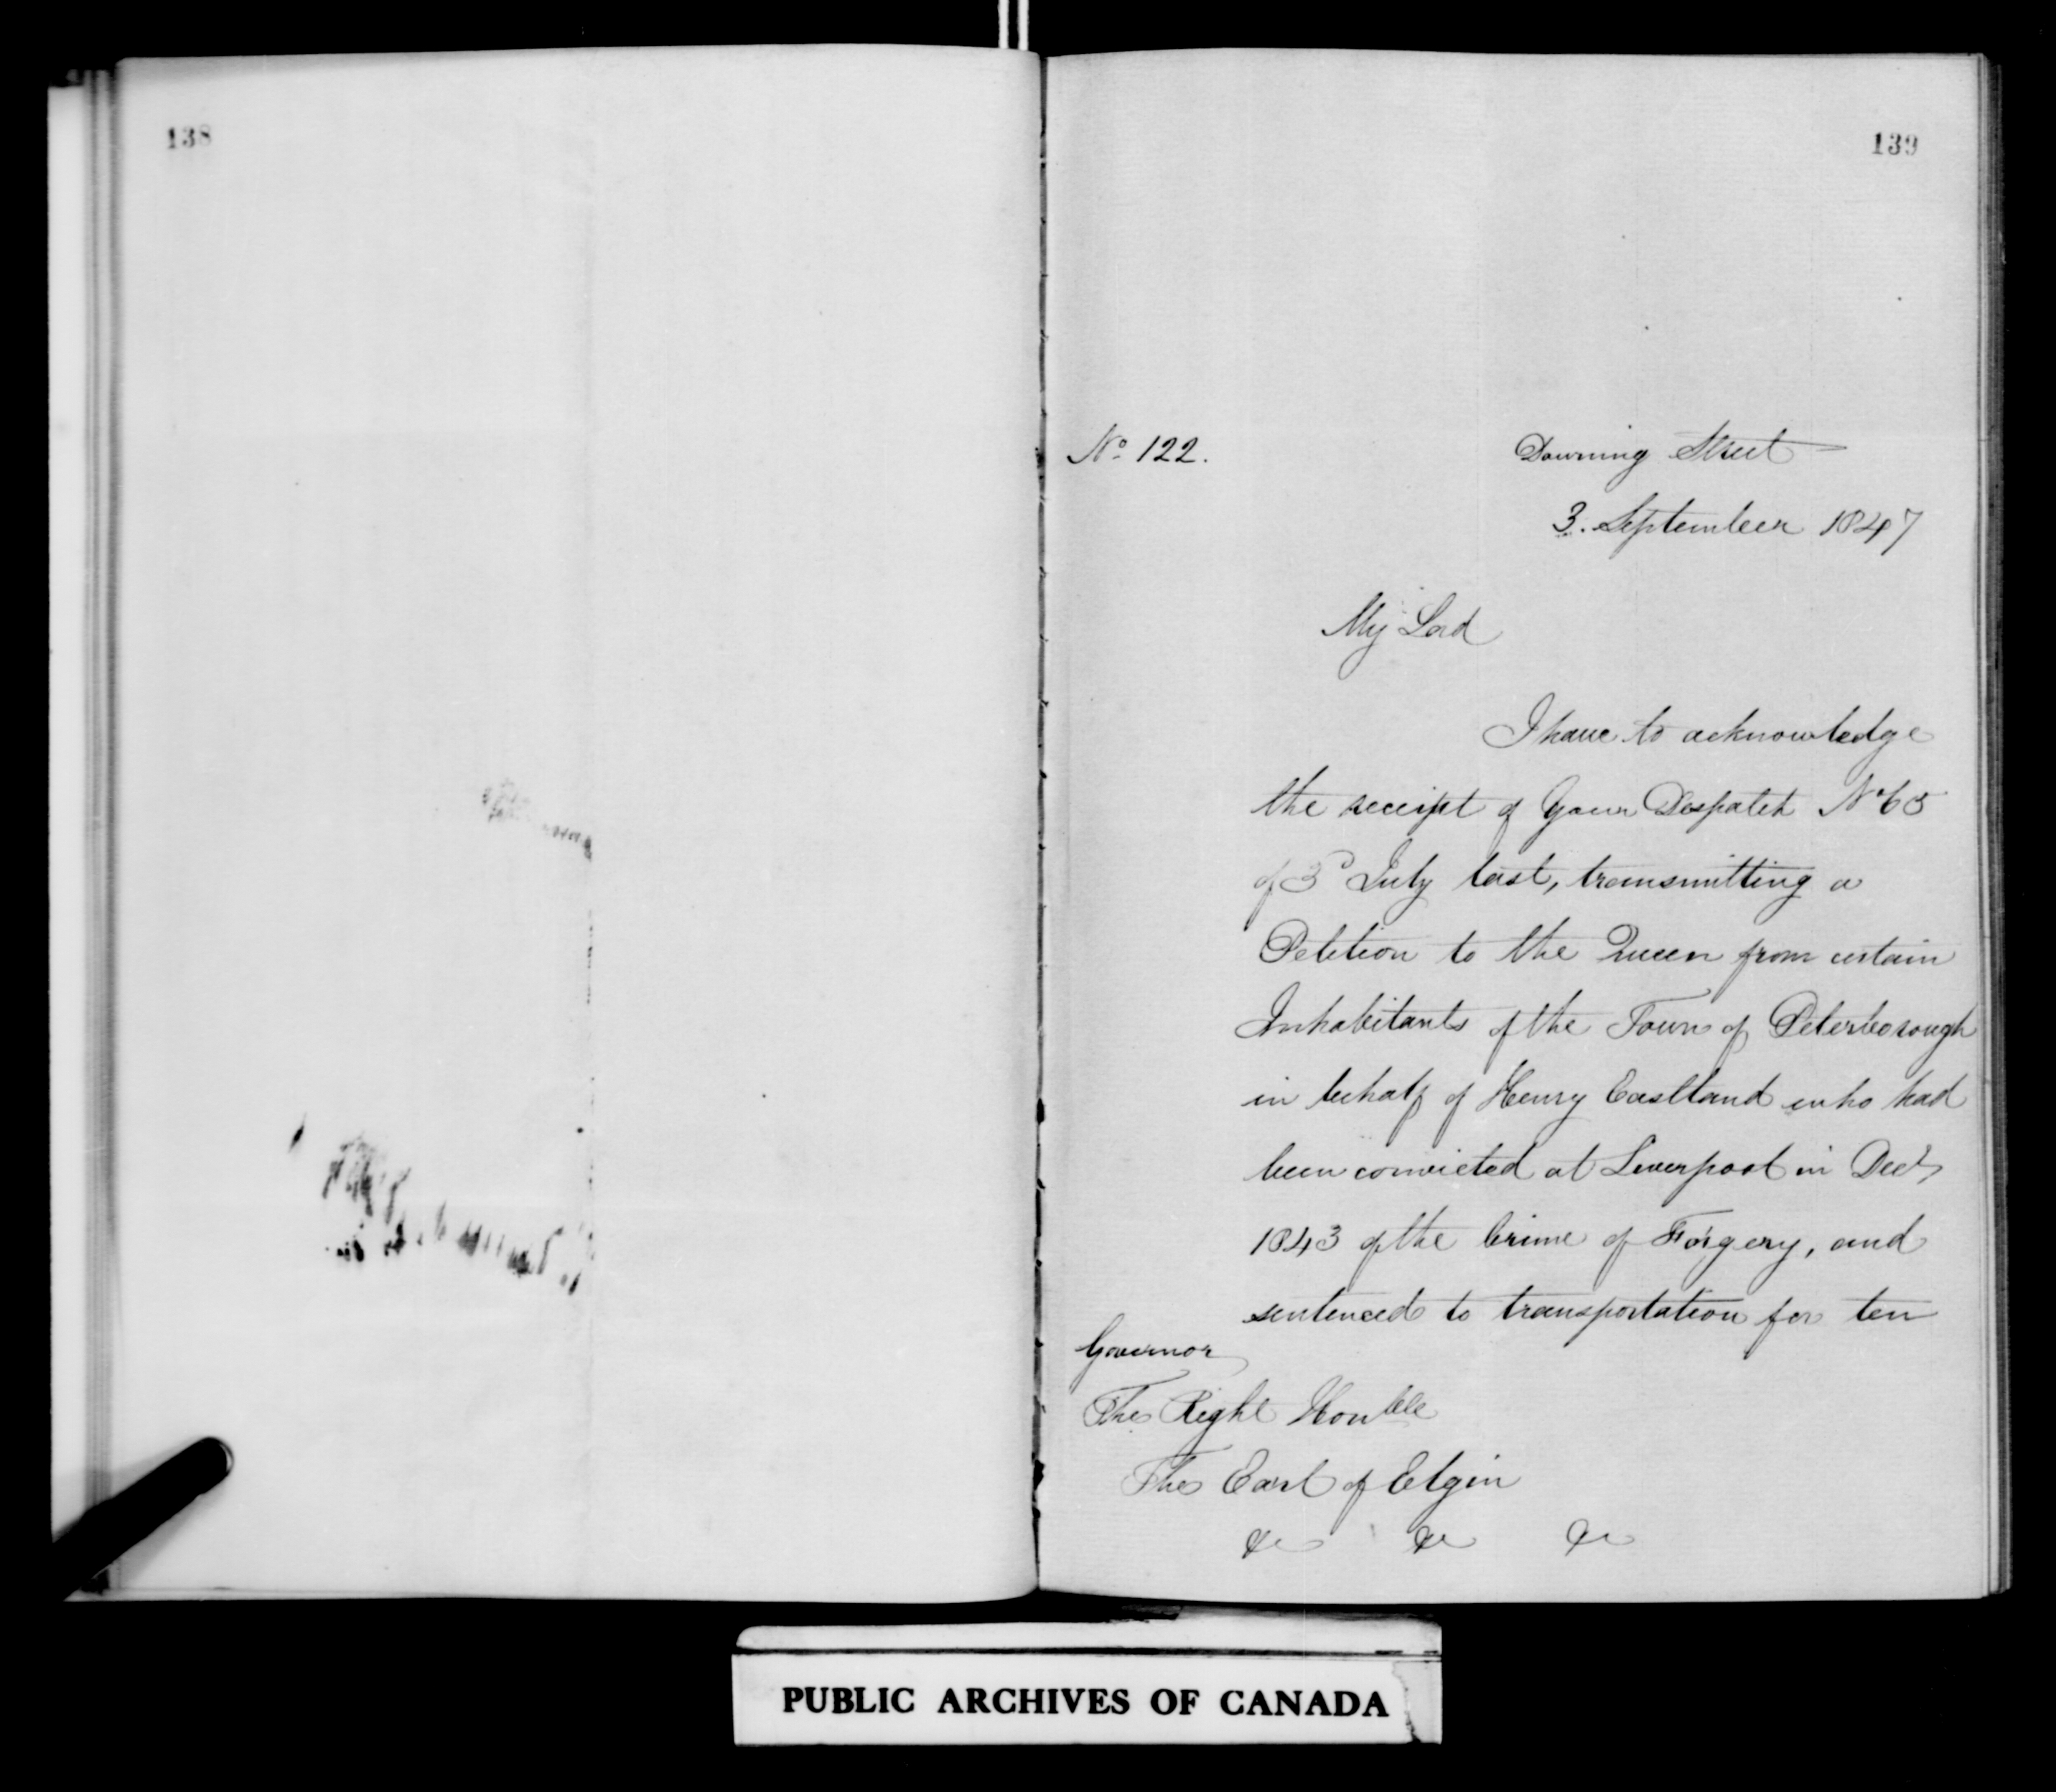 138
139
No 122.
Downing Street
3. September 1847
My Lord
I have to acknowledge
the receipt of Your Despatch No 65
of 3d July last, transmitting a
Petition to the Queen from certain
Inhabitants of the Town of Peterborough
in behalf of Henry Eastland who had
been convicted at Liverpool in Decr
1843 of the Crime of Forgery, and
sentenced to transportation for ten
Governor
The Right Honble
The Earl of Elgin
&c &c &c
PUBLIC ARCHIVES OF CANADA